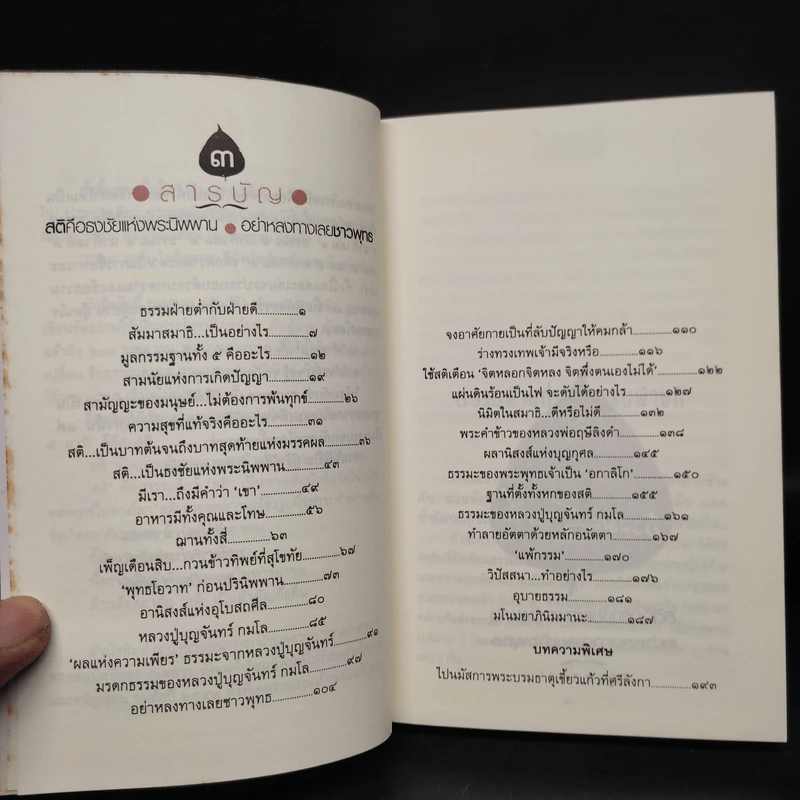 ๓
สารบัญ
สติคือธงชัยแห่งพระนิพพาน ● อย่าหลงทางเลยชาวพุทธ
ธรรมฝ่ายต่ำกับฝ่ายดี...............๑
สัมมาสมาธิ...เป็นอย่างไร...........๗
มูลกรรมฐานทั้ง ๕ คืออะไร...........๑๒
สามนัยแห่งการเกิดปัญญา...........๑๙
สามัญญะของมนุษย์...ไม่ต้องการพ้นทุกข์...........๒๖
ความสุขที่แท้จริงคืออะไร...........๓๑
สติ...เป็นบาทต้นจนถึงบาทสุดท้ายแห่งมรรคผล...........๓๖
สติ...เป็นธงชัยแห่งพระนิพพาน...........๔๓
มีเรา...ถึงมีคำว่า 'เขา'...........๔๙
อาหารมีทั้งคุณและโทษ...........๕๖
ฌานทั้งสี่...........๖๓
เพ็ญเดือนสิบ...กวนข้าวทิพย์ที่สุโขทัย...........๖๗
'พุทธโอวาท' ก่อนปรินิพพาน...........๗๓
อานิสงส์แห่งอุโบสถศีล...........๘๐
หลวงปู่บุญจันทร์ กมโล...........๘๕
'ผลแห่งความเพียร' ธรรมะจากหลวงปู่บุญจันทร์...........๙๑
มรดกธรรมของหลวงปู่บุญจันทร์ กมโล...........๙๗
อย่าหลงทางเลยชาวพุทธ...........๑๐๔
จงอาศัยกายเป็นที่ลับปัญญาให้คมกล้า...........๑๑๐
ร่างทรงเทพเจ้ามีจริงหรือ...........๑๑๖
ใช้สติเตือน 'จิตหลอกจิตหลง จิตพึ่งตนเองไม่ได้'...........๑๒๒
แผ่นดินร้อนเป็นไฟ จะดับได้อย่างไร...........๑๒๗
นิมิตในสมาธิ...ดีหรือไม่ดี...........๑๓๒
พระคำข้าวของหลวงพ่อฤษีลิงดำ...........๑๓๘
ผลานิสงส์แห่งบุญกุศล...........๑๔๕
ธรรมะของพระพุทธเจ้าเป็น 'อกาลิโก'...........๑๕๐
ฐานที่ตั้งทั้งหกของสติ...........๑๕๕
ธรรมะของหลวงปู่บุญจันทร์ กมโล...........๑๖๑
ทำลายอัตตาด้วยหลักอนัตตา...........๑๖๗
'แพ้กรรม'...........๑๗๐
วิปัสสนา...ทำอย่างไร...........๑๗๖
อุบายธรรม...........๑๘๑
มโนมยาภินิมมานะ...........๑๘๗
บทความพิเศษ
ไปนมัสการพระบรมธาตุเขี้ยวแก้วที่ศรีลังกา...........๑๙๓